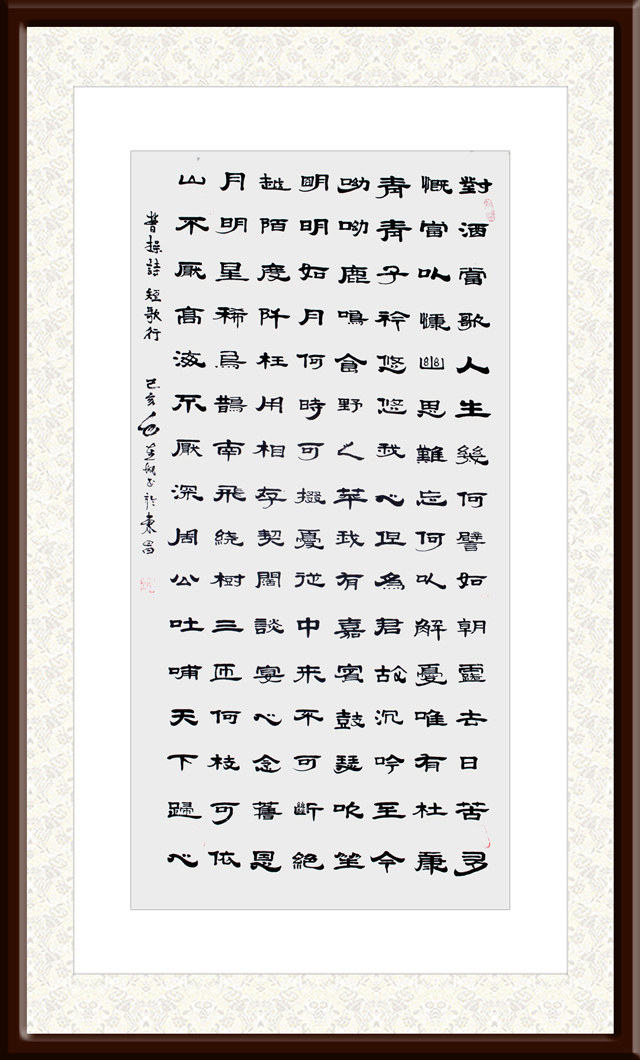 對酒當歌人生幾何譬如朝露去日苦多
慨當以慷幽思難忘何以解憂唯有杜康
青青子衿悠悠我心但為君故沉吟至今
呦呦鹿鳴食野之苹我有嘉賓鼓瑟吹笙
明明如月何時可掇憂從中來不可斷絕
越陌度阡枉用相存契闊談宴心念舊恩
月明星稀烏鵲南飛繞樹三匝何枝可依
山不厭高海不厭深周公吐哺天下歸心
曹操詩 短歌行 己亥 書於東昌